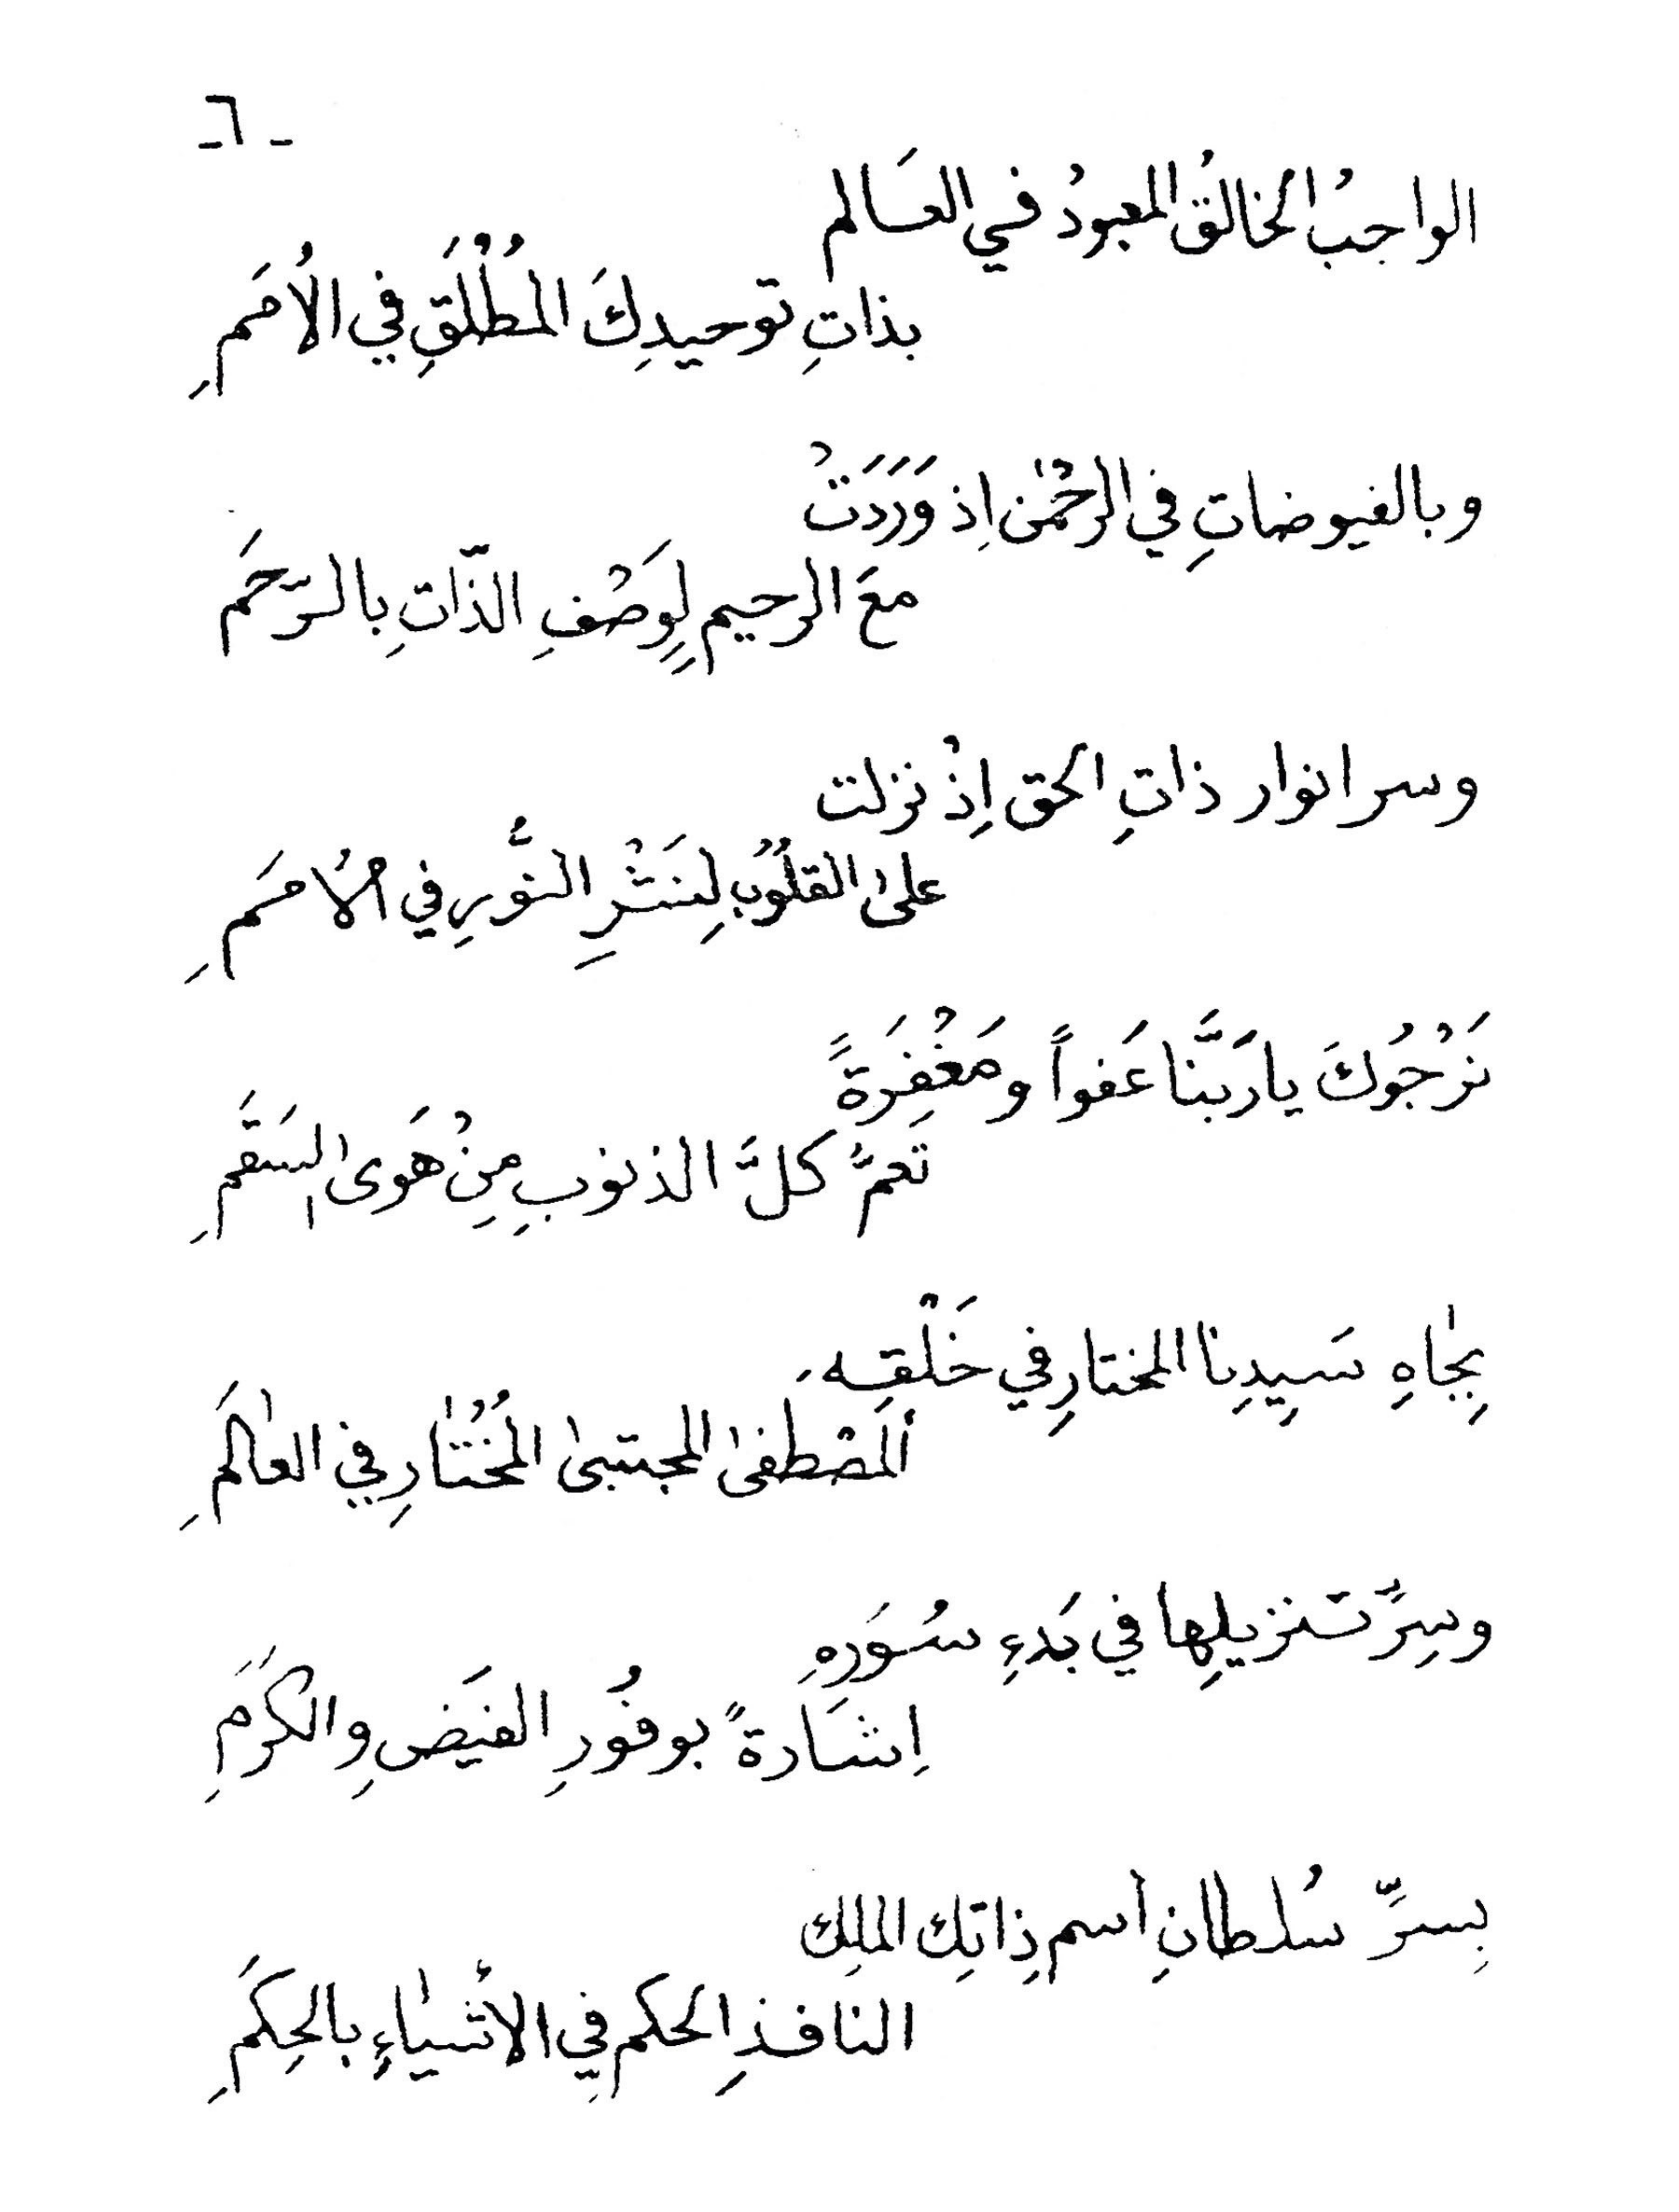 -٦-
الواجبُ الخالقُ المعبودُ في العَالم
بذاتِ توحيدِكَ المُطْلَقِ في الاُمَمِ
وبالفيوضاتِ في الرحْمٰن اِذ وَرَدَتْ
معَ الرحيمِ لِوَصْفِ الذّاتِ بالرّحَمِ
وسر انوار ذاتِ الحق اِذْ نزلت
علىٰ القلُوُبِ لِنَشْرِ النُّورِ في الاُمَمِ
نَرْجُوُكَ يا رَبَّنَا عَفواً ومَغْفِرَةً
تعمَّ كلَّ الذنوبِ مِنْ هَوَى السَقَمِ
بِجٰاهِ سَيِدِنا المختارِ في خَلْقِهِ
اَلمصْطفىٰ المجتبىٰ المُخْتٰارِ في العٰالَمِ
وسِرَّ تنزيلِها في بَدءِ سُوَرِهِ
اِشَارةً بوفُورِ الفيَضِ والكَرَمِ
بِسرِّ سُلطانِ اسم ذِاتِك الملِك
النافذِ الحكمِ في الاشْيٰاءِ بالحِكَمِ